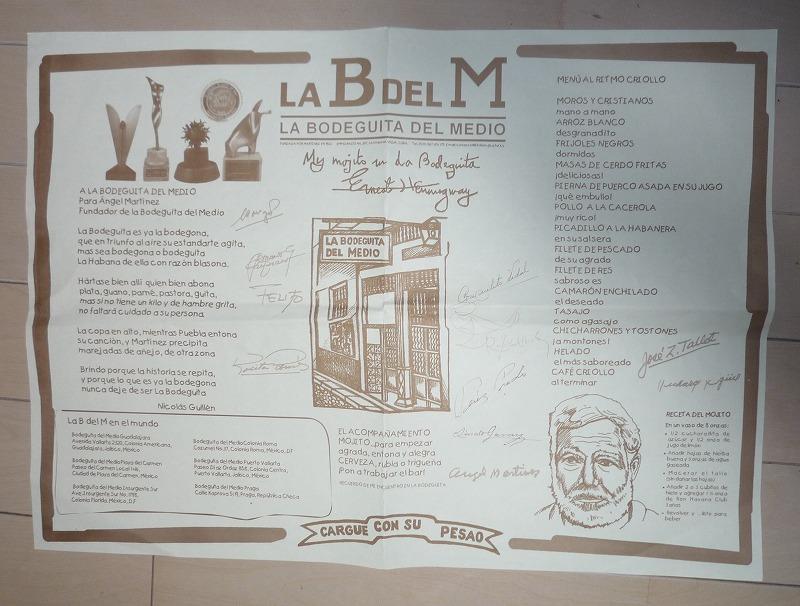 LA B DEL M
LA BODEGUITA DEL MEDIO
My mojito en La Bodeguita
Ernest Hemingway
A LA BODEGUITA DEL MEDIO
Para Ángel Martínez
Fundador de la Bodeguita del Medio
La Bodeguita es ya la bodegona,
que en triunfo al aire su estandarte agita,
mas sea bodegona o bodeguita
La Habana de ella con razón blasona.
Hártase bien allí quien bien abona
plata, guano, parné, pastora, guita,
mas si no tiene un kilo y de hambre grita,
no faltará cuidado a su persona.
La copa en alto, mientras Puebla entona
su canción, y Martínez precipita
marejadas de añejo, de otra zona
Brindo porque la historia se repita,
y porque lo que es ya la bodegona
nunca deje de ser La Bodeguita
Nicolás Guillén
FELITO
LA BODEGUITA
DEL MEDIO
MENÚ AL RITMO CRIOLLO
MOROS Y CRISTIANOS
mano a mano
ARROZ BLANCO
desgranadito
FRIJOLES NEGROS
dormidos
MASAS DE CERDO FRITAS
¡deliciosas!
PIERNA DE PUERCO ASADA EN SU JUGO
¡qué embullo!
POLLO A LA CACEROLA
¡muy rico!
PICADILLO A LA HABANERA
en su salsera
FILETE DE PESCADO
de su agrado
FILETE DE RES
sabroso es
CAMARÓN ENCHILADO
el deseado
TASAJO
como agasajo
CHICHARRONES Y TOSTONES
¡a montones!
HELADO
el más saboreado
CAFÉ CRIOLLO
al terminar
José Z. Tallet
Angel Martínez
La B del M en el mundo
Bodeguita del Medio Guadalajara
Avenida Vallarta 2320, Colonia Americana,
Guadalajara, Jalisco, México
Bodeguita del Medio Playa del Carmen
Paseo del Carmen Local
Ciudad de Playa del Carmen, México
Bodeguita del Medio Insurgente Sur
Ave. Insurgente Sur No. 1798,
Colonia Florida, México, D.F
Bodeguita del Medio Colonia Roma
Cozumel No 37, Colonia Roma, México, DF
Bodeguita del Medio Puerto Vallarta
Paseo Díaz Ordaz 858, Colonia Centro,
Puerto Vallarta, Jalisco, México
Bodeguita del Medio Praga
Calle Kaprova 5/19, Praga, República Checa
EL ACOMPAÑAMIENTO
MOJITO...para empezar
agrada, entona y alegra
CERVEZA, rubia o trigueña
Pon a trabajar el bar!
RECUERDO DE MI ENCUENTRO EN LA BODEGUITA
RECETA DEL MOJITO
En un vaso de 8 onzas:
• 1/2 cucharadita de
azúcar y 1/2 onza de
jugo de limón
• Añadir hojas de hierba
buena y 3 onzas de agua
gaseada
• Macerar el tallo
(sin dañar las hojas)
• Añadir 2 o 3 cubitos de
hielo y agregar 1 ½ onza
de Ron Havana Club
3 años
• Revolver y ...listo para
beber
CARGUE CON SU PESAO